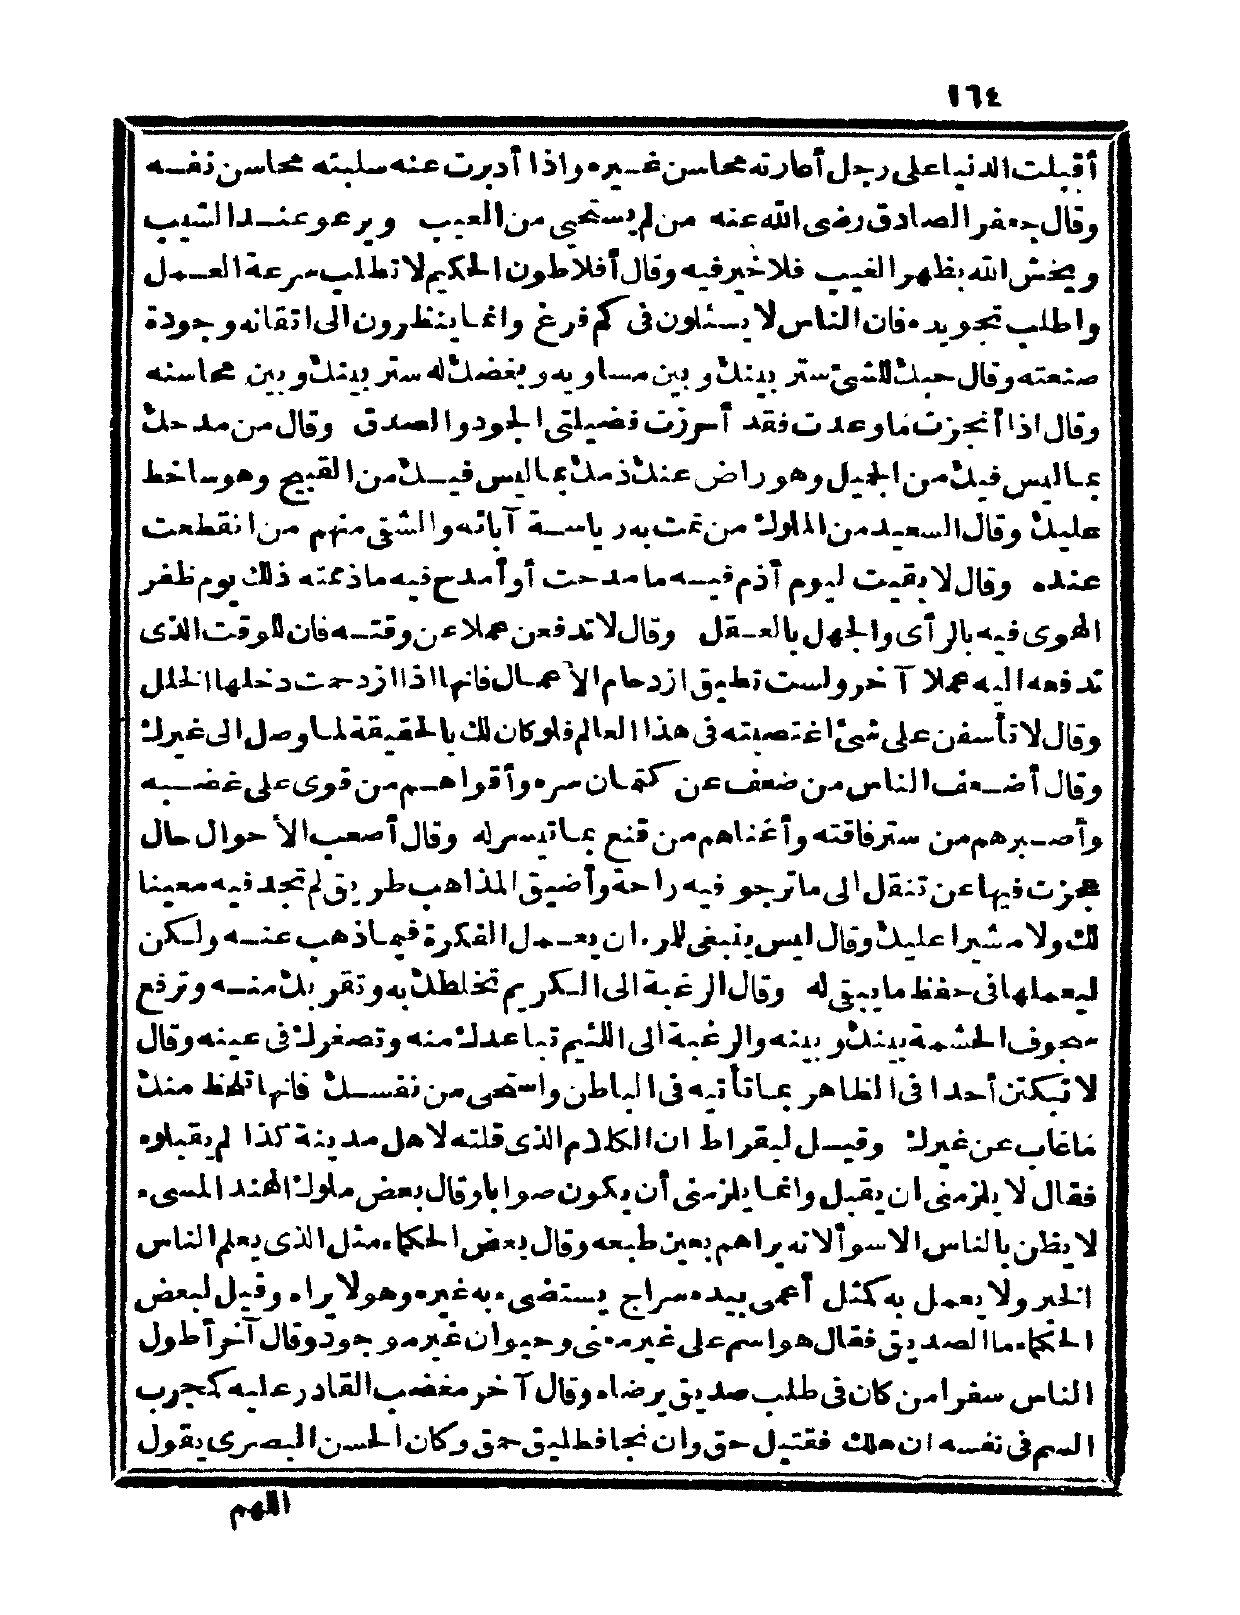 ١٦٤
أقبلت الدنيا على رجل أعارته محاسن غيره واذا أدبرت عنه سلبته محاسن نفسه
وقال جعفر الصادق رضى الله عنه من لم يستحى من العيب ويرعو عند الشيب
ويخش الله بظهر الغيب فلا خير فيه وقال أفلاطون الحكيم لا تطلب سرعة العمل
واطلب تجويده فان الناس لا يسئلون فى كم فرغ وانما ينظرون الى اتقانه وجودة
صنعته وقال حبك للشئ ستر بينك وبين مساويه وبغضك له ستر بينك وبين محاسنه
وقال اذا أنجزت ما وعدت فقد أحرزت فضيلتى الجود والصدق وقال من مدحك
بما ليس فيك من الجميل وهو راض عنك ذمك بما ليس فيك من القبيح وهو ساخط
عليك وقال السعيد من الملوك من تمت به رياسة آبائه والشقى منهم من انقطعت
عنده وقال لا بقيت ليوم أذم فيه ما مدحت أو أمدح فيه ما ذممته ذلك يوم ظفر
الهوى فيه بالرأى والجهل بالعقل وقال لا تدفعن عملا عن وقته فان للوقت الذى
تدفعه اليه عملا آخر ولست تطيق ازدحام الأعمال فانها اذا ازدحمت دخلها الخلل
وقال لا تأسفن على شئ اغتصبته فى هذا العالم فلو كان لك بالحقيقة لما وصل الى غيرك
وقال أضعف الناس من ضعف عن كتمان سره وأقواهم من قوى على غضبه
وأصبرهم من ستر فاقته وأغناهم من قنع بما تيسر له وقال أصعب الأحوال حال
عجزت فيها عن تنقل الى ما ترجو فيه راحة وأضيق المذاهب طريق لم تجد فيه معينا
لك ولا مشيرا عليك وقال ليس ينبغى للمرء ان يعمل الفكرة فيما ذهب عنه ولكن
ليعملها فى حفظ ما يبقى له وقال الرغبة الى الكريم تخلطك به وتقربك منه وترفع
سجوف الحشمة بينك وبينه والرغبة الى اللئيم تباعدك منه وتصغرك فى عينه وقال
لا تبكتن أحدا فى الظاهر بما تأتيه فى الباطن واستحى من نفسك فانها تلحظ منك
ما غاب عن غيرك وقيل لبقراط ان الكلام الذى قلته لاهل مدينة كذا لم يقبلوه
فقال لا يلزمنى ان يقبل وانما يلزمنى أن يكون صوابا وقال بعض ملوك الهند المسىء
لا يظن بالناس الا سوأ لانه يراهم بعين طبعه وقال بعض الحكماء مثل الذى يعلم الناس
الخير ولا يعمل به كمثل أعمى بيده سراج يستضىء به غيره وهو لا يراه وقيل لبعض
الحكماء ما الصديق فقال هو اسم على غير معنى وحيوان غير موجود وقال آخر أطول
الناس سفرا من كان فى طلب صديق يرضاه وقال آخر مغضب القادر عليه كمجرب
السم فى نفسه ان هلك فقتيل حمق وان نجا فطليق حمق وكان الحسن البصرى يقول
اللهم